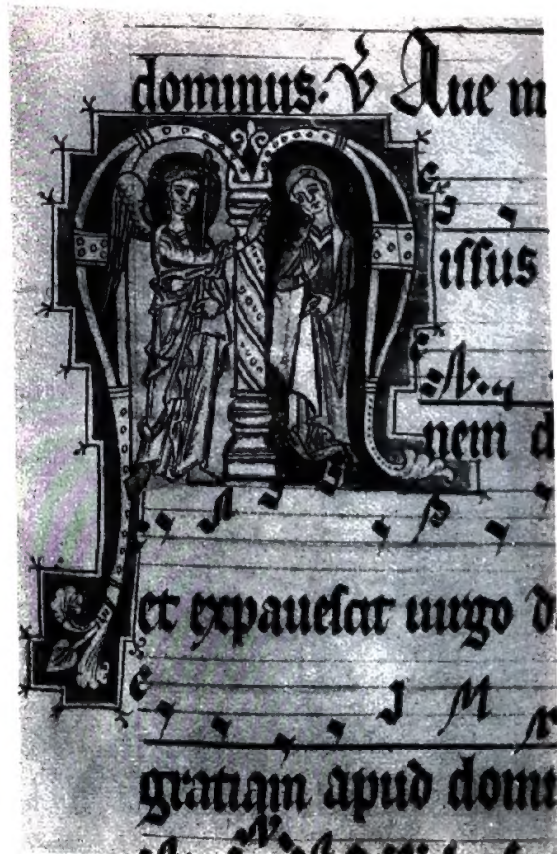 dominus. V Aue m
issus
nem d
et expauescit uirgo d
gratiam apud domi